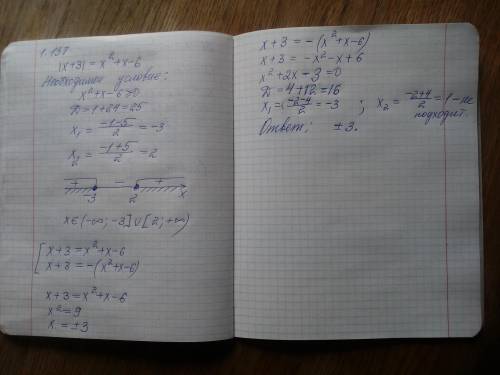 1.137
|x+3| = x²+x-6
Необходимое условие:
x²+x-6≥0
D=1+24=25
x₁ = (-1-5)/2 = -3
x₂ = (-1+5)/2 = 2
+ - +
-3 2 x
x∈(-∞; -3]∪[2; +∞)
[ x+3 = x²+x-6
x+3 = -(x²+x-6)
x+3 = x²+x-6
x² = 9
x = ±3
x+3 = -(x²+x-6)
x+3 = -x²-x+6
x²+2x-3=0
D=4+12=16
x₁ = (-2-4)/2 = -3 ; x₂ = (-2+4)/2 = 1 - не
подходит.
Ответ: ±3.